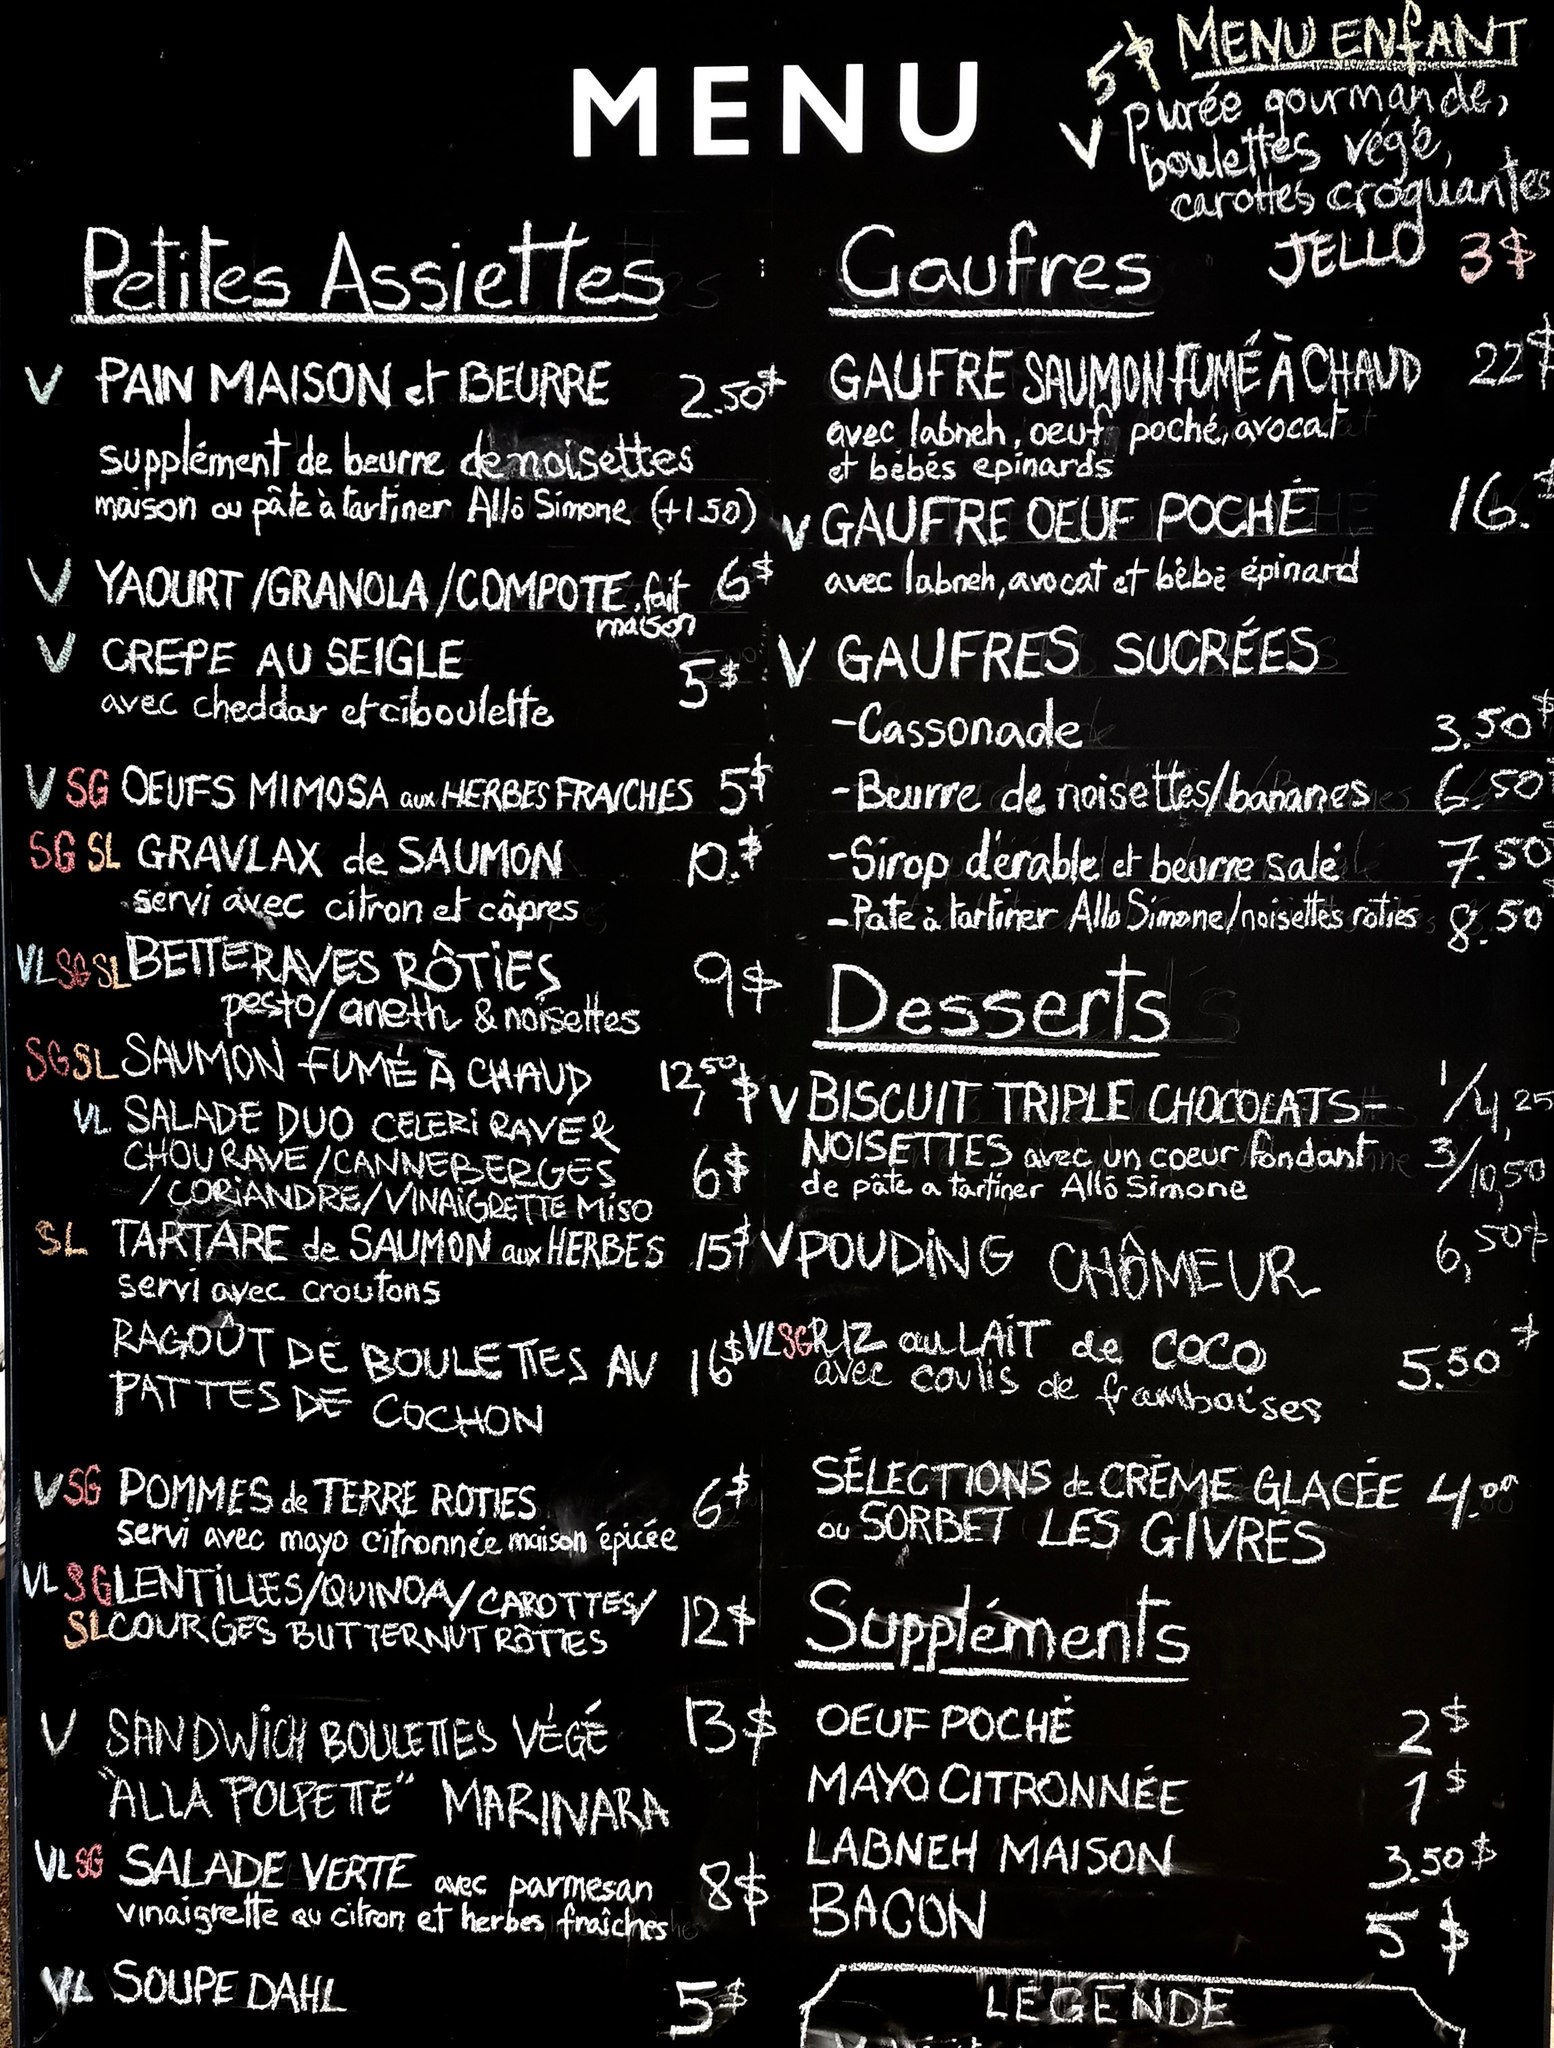 MENU
5$ MENU ENFANT
V purée gourmande,
boulettes végé,
carottes croquantes
JELLO 3$
Petites Assiettes
V PAIN MAISON et BEURRE 2.50$
supplément de beurre de noisettes
maison ou pâte à tartiner Allô Simone (+1.50)
V YAOURT/GRANOLA/COMPOTE, fait 6$
maison
V CREPE AU SEIGLE 5$
avec cheddar et ciboulette
V SG OEUFS MIMOSA aux HERBES FRAICHES 5$
SG SL GRAVLAX de SAUMON 10.$
servi avec citron et câpres
VL SG SL BETTERAVES RÔTIES 9$
pesto/aneth & noisettes
SG SL SAUMON FUMÉ À CHAUD 12,50$
VL SALADE DUO CELERI RAVE &
CHOU RAVE/CANNEBERGES 6$
/CORIANDRE/VINAIGRETTE MISO
SL TARTARE de SAUMON aux HERBES 15$
servi avec croutons
RAGOÛT DE BOULETTES AU 16$
PATTES DE COCHON
V SG POMMES de TERRE ROTIES 6$
servi avec mayo citronnée maison épicée
VL SG LENTILLES/QUINOA/CAROTTES/
SL COURGES BUTTERNUT RÔTIES 12$
V SANDWICH BOULETTES VÉGÉ 13$
"ALLA POLPETTE" MARINARA
VL SG SALADE VERTE avec parmesan 8$
vinaigrette au citron et herbes fraîches
VL SOUPE DAHL 5$
Gaufres
GAUFRE SAUMON FUMÉ À CHAUD 22$
avec labneh, oeuf poché, avocat
et bébés epinards
V GAUFRE OEUF POCHÉ 16.$
avec labneh, avocat et bébé épinard
V GAUFRES SUCRÉES
-Cassonade 3.50$
-Beurre de noisettes/bananes 6.50$
-Sirop d'érable et beurre salé 7.50$
-Pate à tartiner Allo Simone/noisettes roties 8.50
Desserts
V BISCUIT TRIPLE CHOCOLATS- 1/4,25
NOISETTES avec un coeur fondant 3/10,50
de pâte a tartiner Allô Simone
V POUDING CHÔMEUR 6,50$
VL SG RIZ au LAIT de COCO 5.50$
avec coulis de framboises
SÉLECTIONS de CRÈME GLACÉE 4.00
ou SORBET LES GIVRÉS
Suppléments
OEUF POCHÉ 2$
MAYO CITRONNÉE 1$
LABNEH MAISON 3.50$
BACON 5$
LÉGENDE